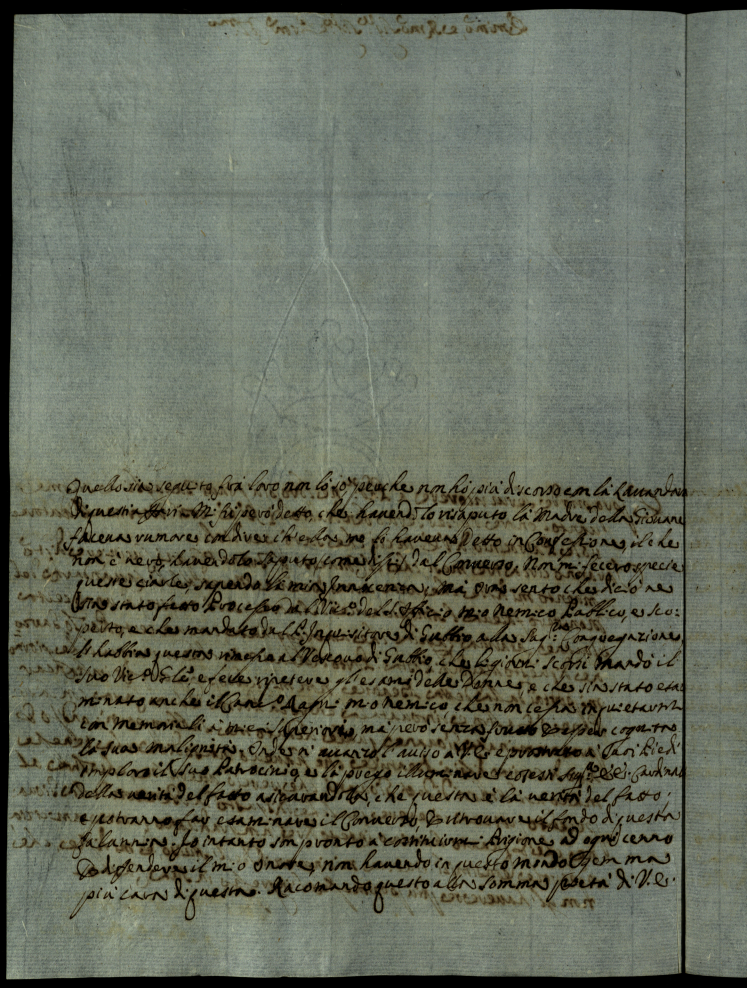 Quello sia seguito fra loro non lo sò, perche non hò più discorso con la Lavandara
di questi affari. Mi hà però detto che havendolo risaputo la Madre della Giovane
faceva rumore con dire ch'ella me lo haveva detto in Confessione, il che
non è vero, havendolo saputo come dissi dal Converso. Non mi fecero specie
queste ciarle, sapendo la mia Innocenza, ma ora sento che di ciò ne
sia stato fatto Processo dal Vic.o del S. Officio mio nemico Publico, e sco-
perto, e che mandato dal P. Inquisitore di Gubbio alla Sag. Congregazione
l'habbia questa rimessa al Vescovo di Gubbio, che le giorni scorsi mandò il
suo Vic. G.le, e fece ripetere gl'esami delle Donne, e che sia stato esa-
minato anche il Canc. mio nemico che non cessa inquietarmi
con Memoriali a miei superiori, ma però senza frutto per esser cognita
la sua malignità. Onde n'avanzo l'aviso a V.E. e prostrato a suoi Piedi
imploro il suo Patrocinio, e la prego illuminare cotesti Sig.ri Cardinali
della verità del fatto assicurandola, che questa è la verità del fatto,
e potranno far esaminare il Converso, e ritrovare il fondo di questa
falunnia. Io intanto son pronto a costituirmi Prigione ad ogni cenno
e difendere il mio Onore, non havendo in questo mondo Gemma
più cara di questa. Racomando questo alla somma pietà di V.E.